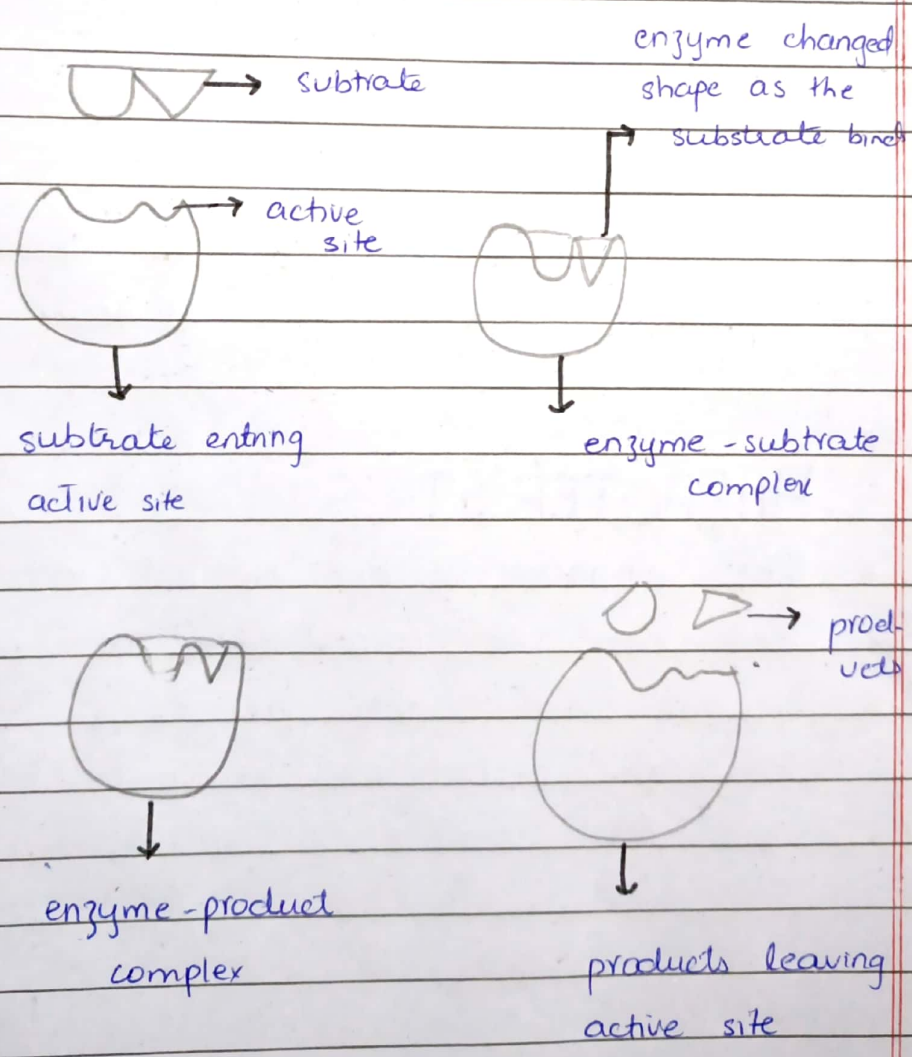 subtrate
enzyme changed
shape as the
substrate bind
active
site
subtrate entring
active site
enzyme-subtrate
complex
prod-
ucts
enzyme-product
complex
products leaving
active site